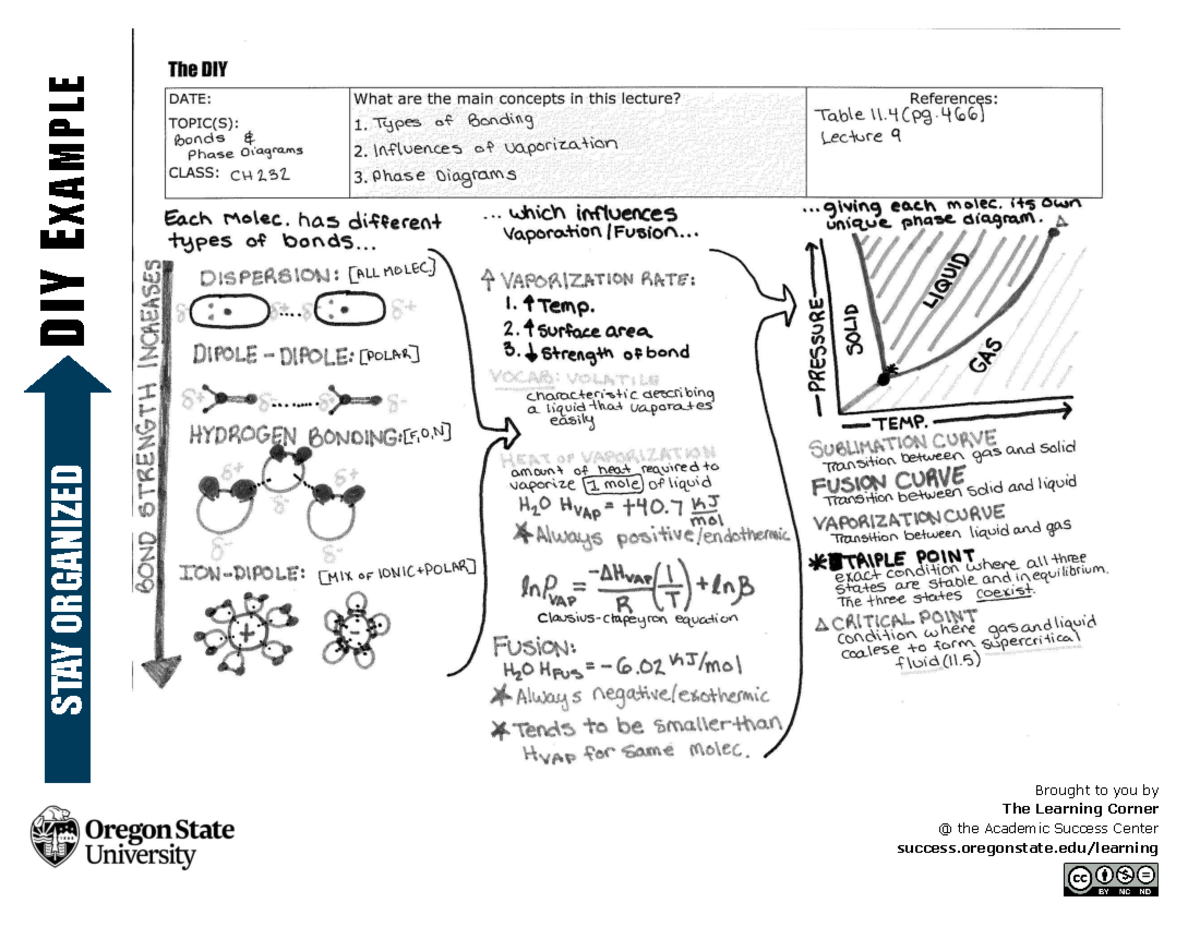 DIY EXAMPLE
STAY ORGANIZED
The DIY
DATE:
TOPIC(S):
Bonds &
Phase Diagrams
CLASS: CH232
What are the main concepts in this lecture?
1. Types of Bonding
2. Influences of Vaporization
3. Phase Diagrams
References:
Table 11.4 (pg. 466)
Lecture 9
Each Molec. has different
types of bonds...
BOND STRENGTH INCREASES
DISPERSION: [ALL MOLEC.]
δ- δ+ δ- δ+
DIPOLE-DIPOLE: [POLAR]
δ+ δ- δ+ δ-
HYDROGEN BONDING: [F,O,N]
δ+ δ+
δ-
δ- δ-
ION-DIPOLE: [MIX OF IONIC+POLAR]
+ -
... which influences
Vaporation/Fusion...
↑ VAPORIZATION RATE:
1. ↑ Temp.
2. ↑ Surface area
3. ↓ Strength of bond
VOCAB: VOLATILE
characteristic describing
a liquid that vaporates
easily
HEAT OF VAPORIZATION
amount of heat required to
vaporize 1 mole of liquid
H₂O HVAP = +40.7 KJ/mol
* Always positive/endothermic
lnPVAP = -ΔHVAP/R (1/T) + lnB
Clausius-Clapeyron equation
FUSION:
H₂O HFUS = -6.02 KJ/mol
* Always negative/exothermic
* Tends to be smaller than
HVAP for same molec.
...giving each molec. its own
unique phase diagram.
Δ
PRESSURE
SOLID
LIQUID
GAS
*
TEMP.
SUBLIMATION CURVE
Transition between gas and solid
FUSION CURVE
Transition between solid and liquid
VAPORIZATION CURVE
Transition between liquid and gas
* TRIPLE POINT
exact condition where all three
states are stable and in equilibrium.
The three states coexist.
Δ CRITICAL POINT
condition where gas and liquid
coalese to form supercritical
fluid (11.5)
Oregon State
University
Brought to you by
The Learning Corner
@ the Academic Success Center
success.oregonstate.edu/learning
cc
BY NC ND